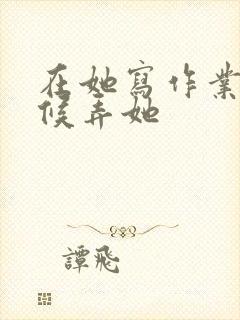 在她寫作業
候弄她
譚飛